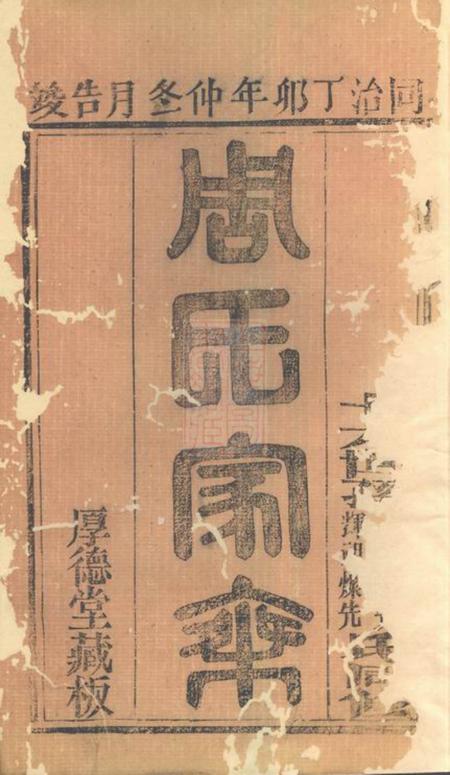 同治丁卯年仲冬月告竣
十六世
輝
燦先
周氏家乘
厚德堂藏板